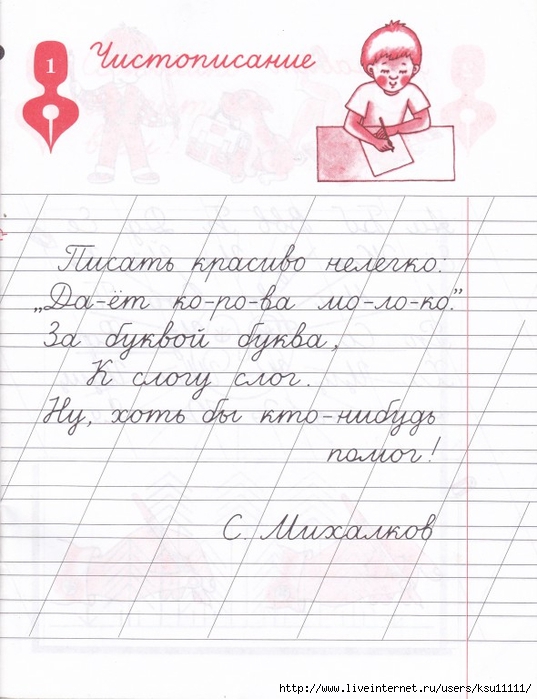 1
Чистописание
Писать красиво нелегко:
„Да-ёт ко-ро-ва мо-ло-ко."
За буквой буква,
К слогу слог.
Ну, хоть бы кто-нибудь
помог!
С. Михалков
http://www.liveinternet.ru/users/ksu11111/